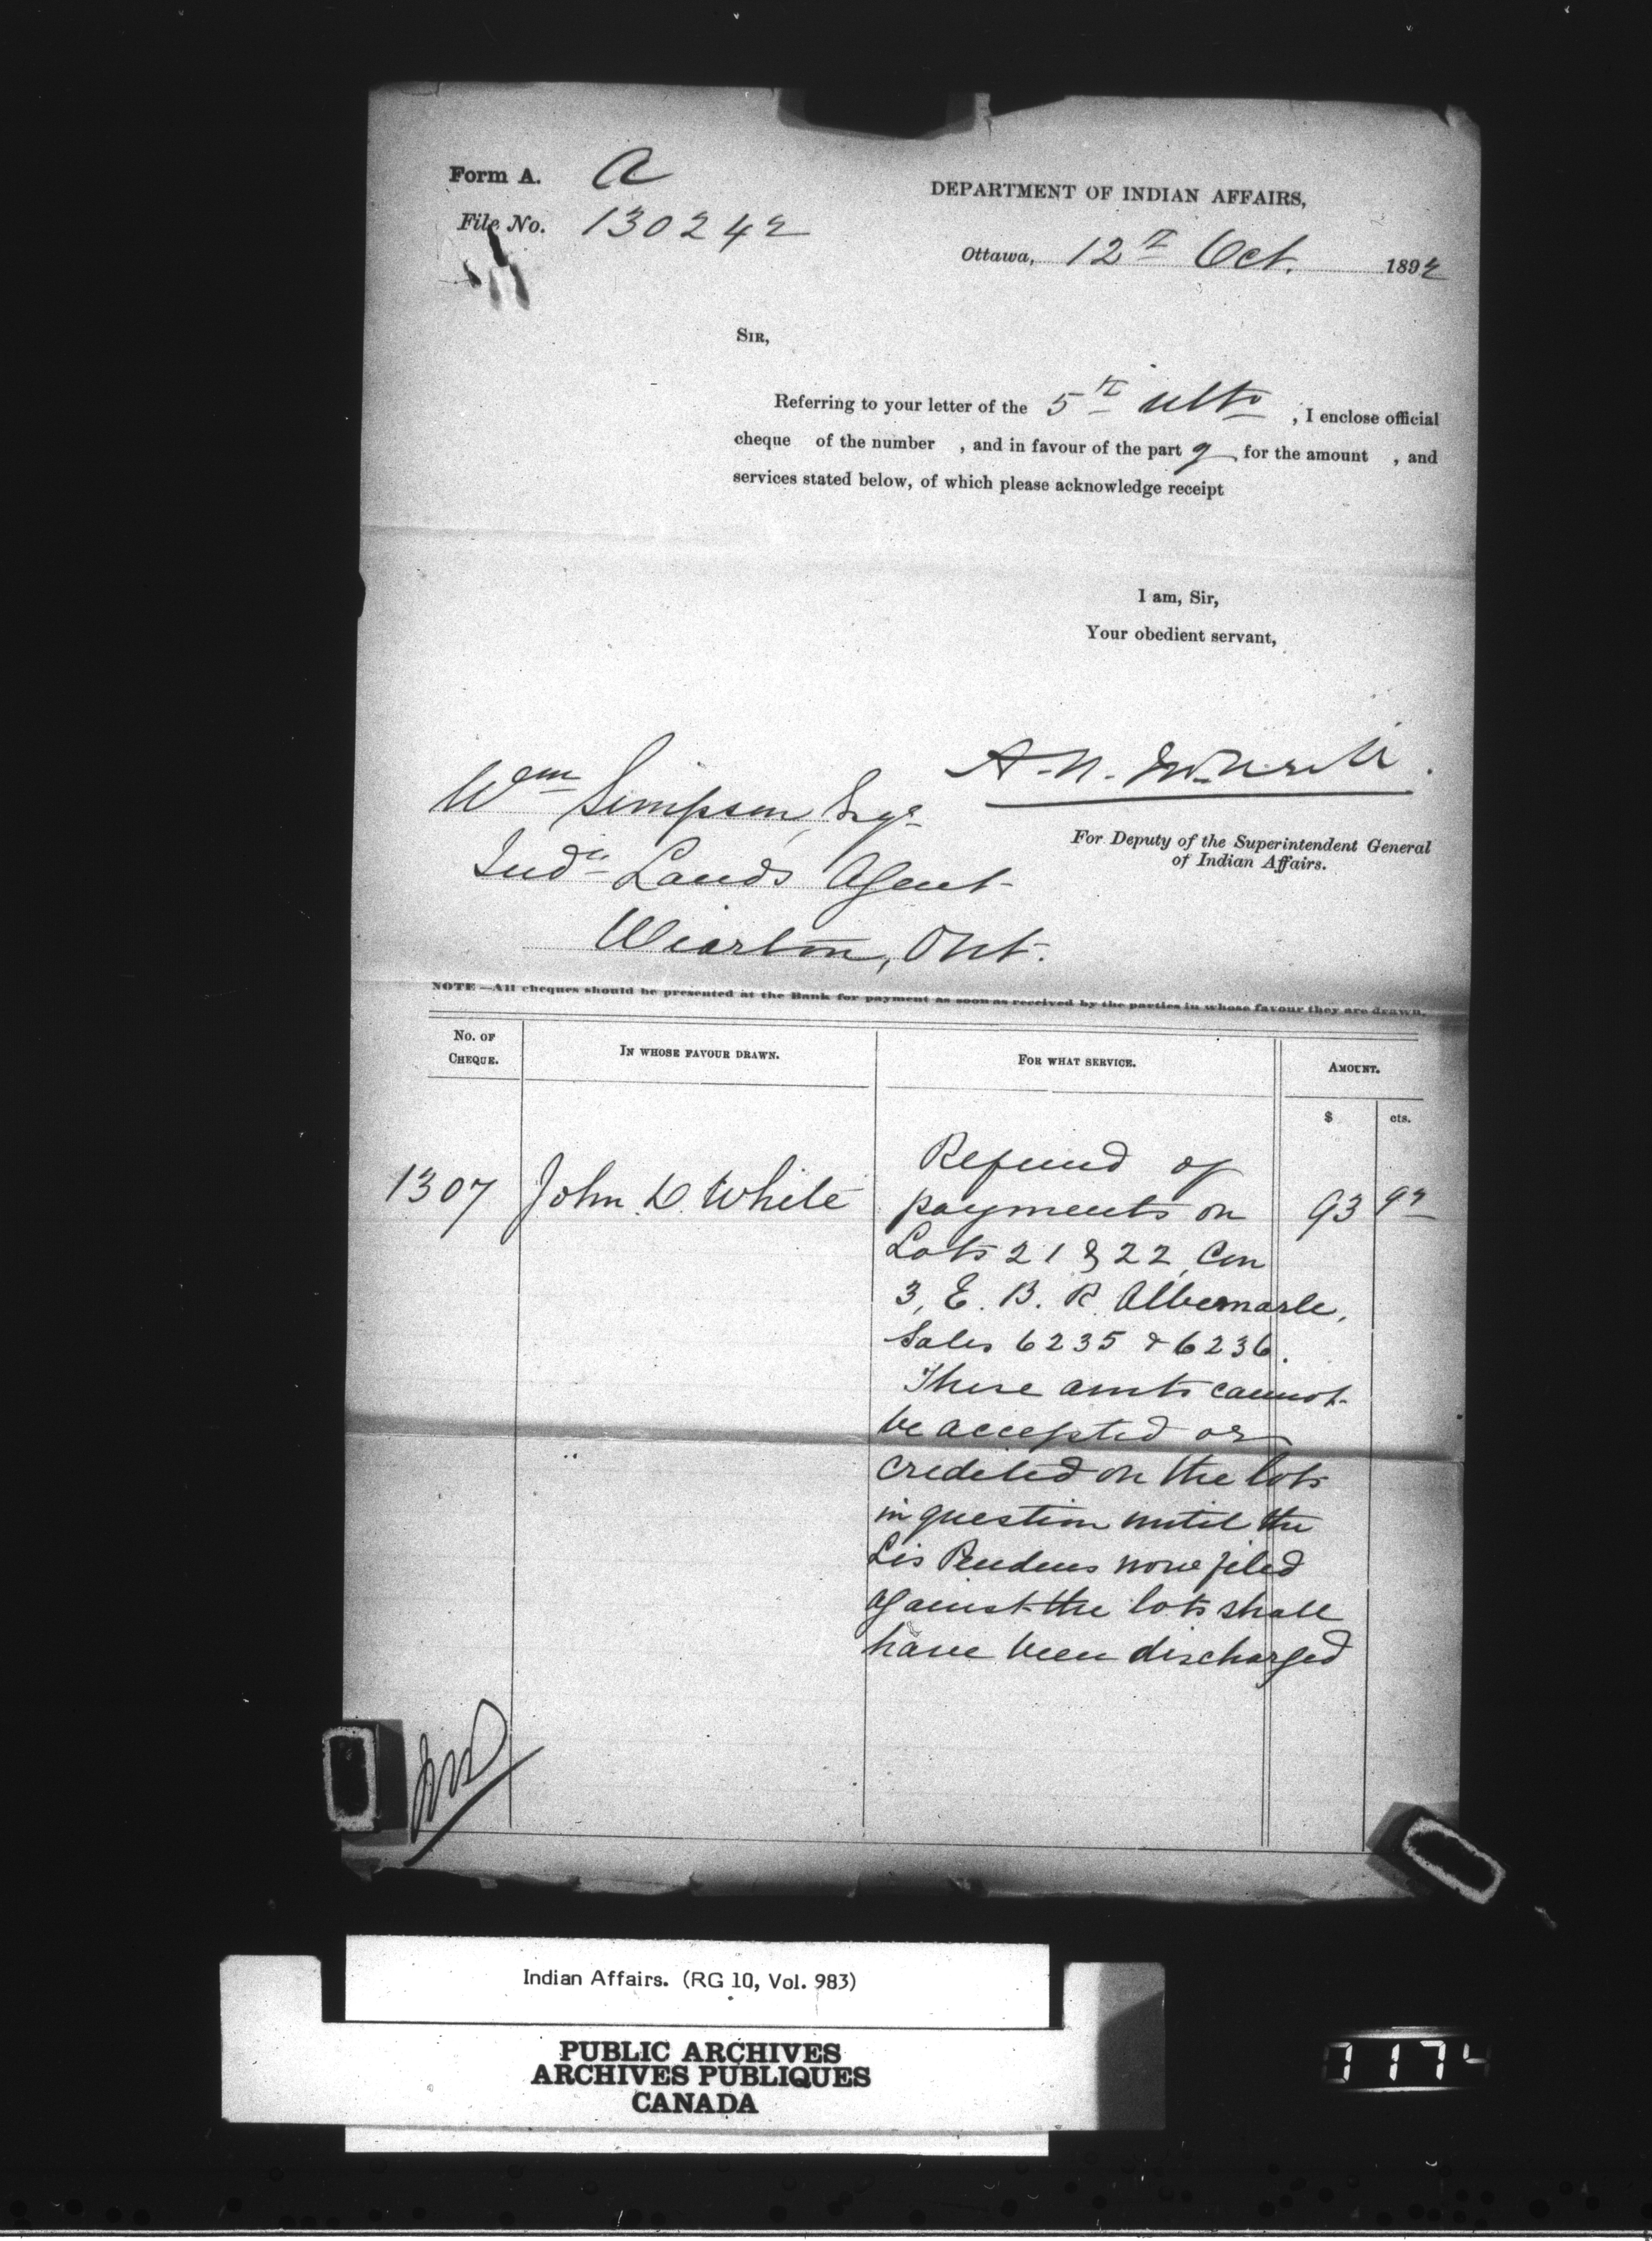 Form A. A
DEPARTMENT OF INDIAN AFFAIRS,
File No. 130242
Ottawa, 12th Oct. 1892
SIR,
Referring to your letter of the 5th ulto, I enclose official
cheque of the number , and in favour of the part y for the amount , and
services stated below, of which please acknowledge receipt
I am, Sir,
Your obedient servant,
A. N.
Wm Simpson, Esqe
For Deputy of the Superintendent General
of Indian Affairs.
Indn Lands Agent
Wiarton, Ont.
NOTE—All cheques should be presented at the Bank for payment as soon as received by the parties in whose favour they are drawn.
No. OF CHEQUE.
IN WHOSE FAVOUR DRAWN.
FOR WHAT SERVICE.
AMOUNT.
$ cts.
1307 John D. White
Refund of
payments on 93
Lots 21 & 22, Con
3, E. B. R. Albemarle,
Sales 6235 & 6236.
These amts cannot
be accepted or
credited on the lots
in question until the
Lis Pendens now filed
against the lots shall
have been discharged
Indian Affairs. (RG 10, Vol. 983)
PUBLIC ARCHIVES
ARCHIVES PUBLIQUES
CANADA
1174